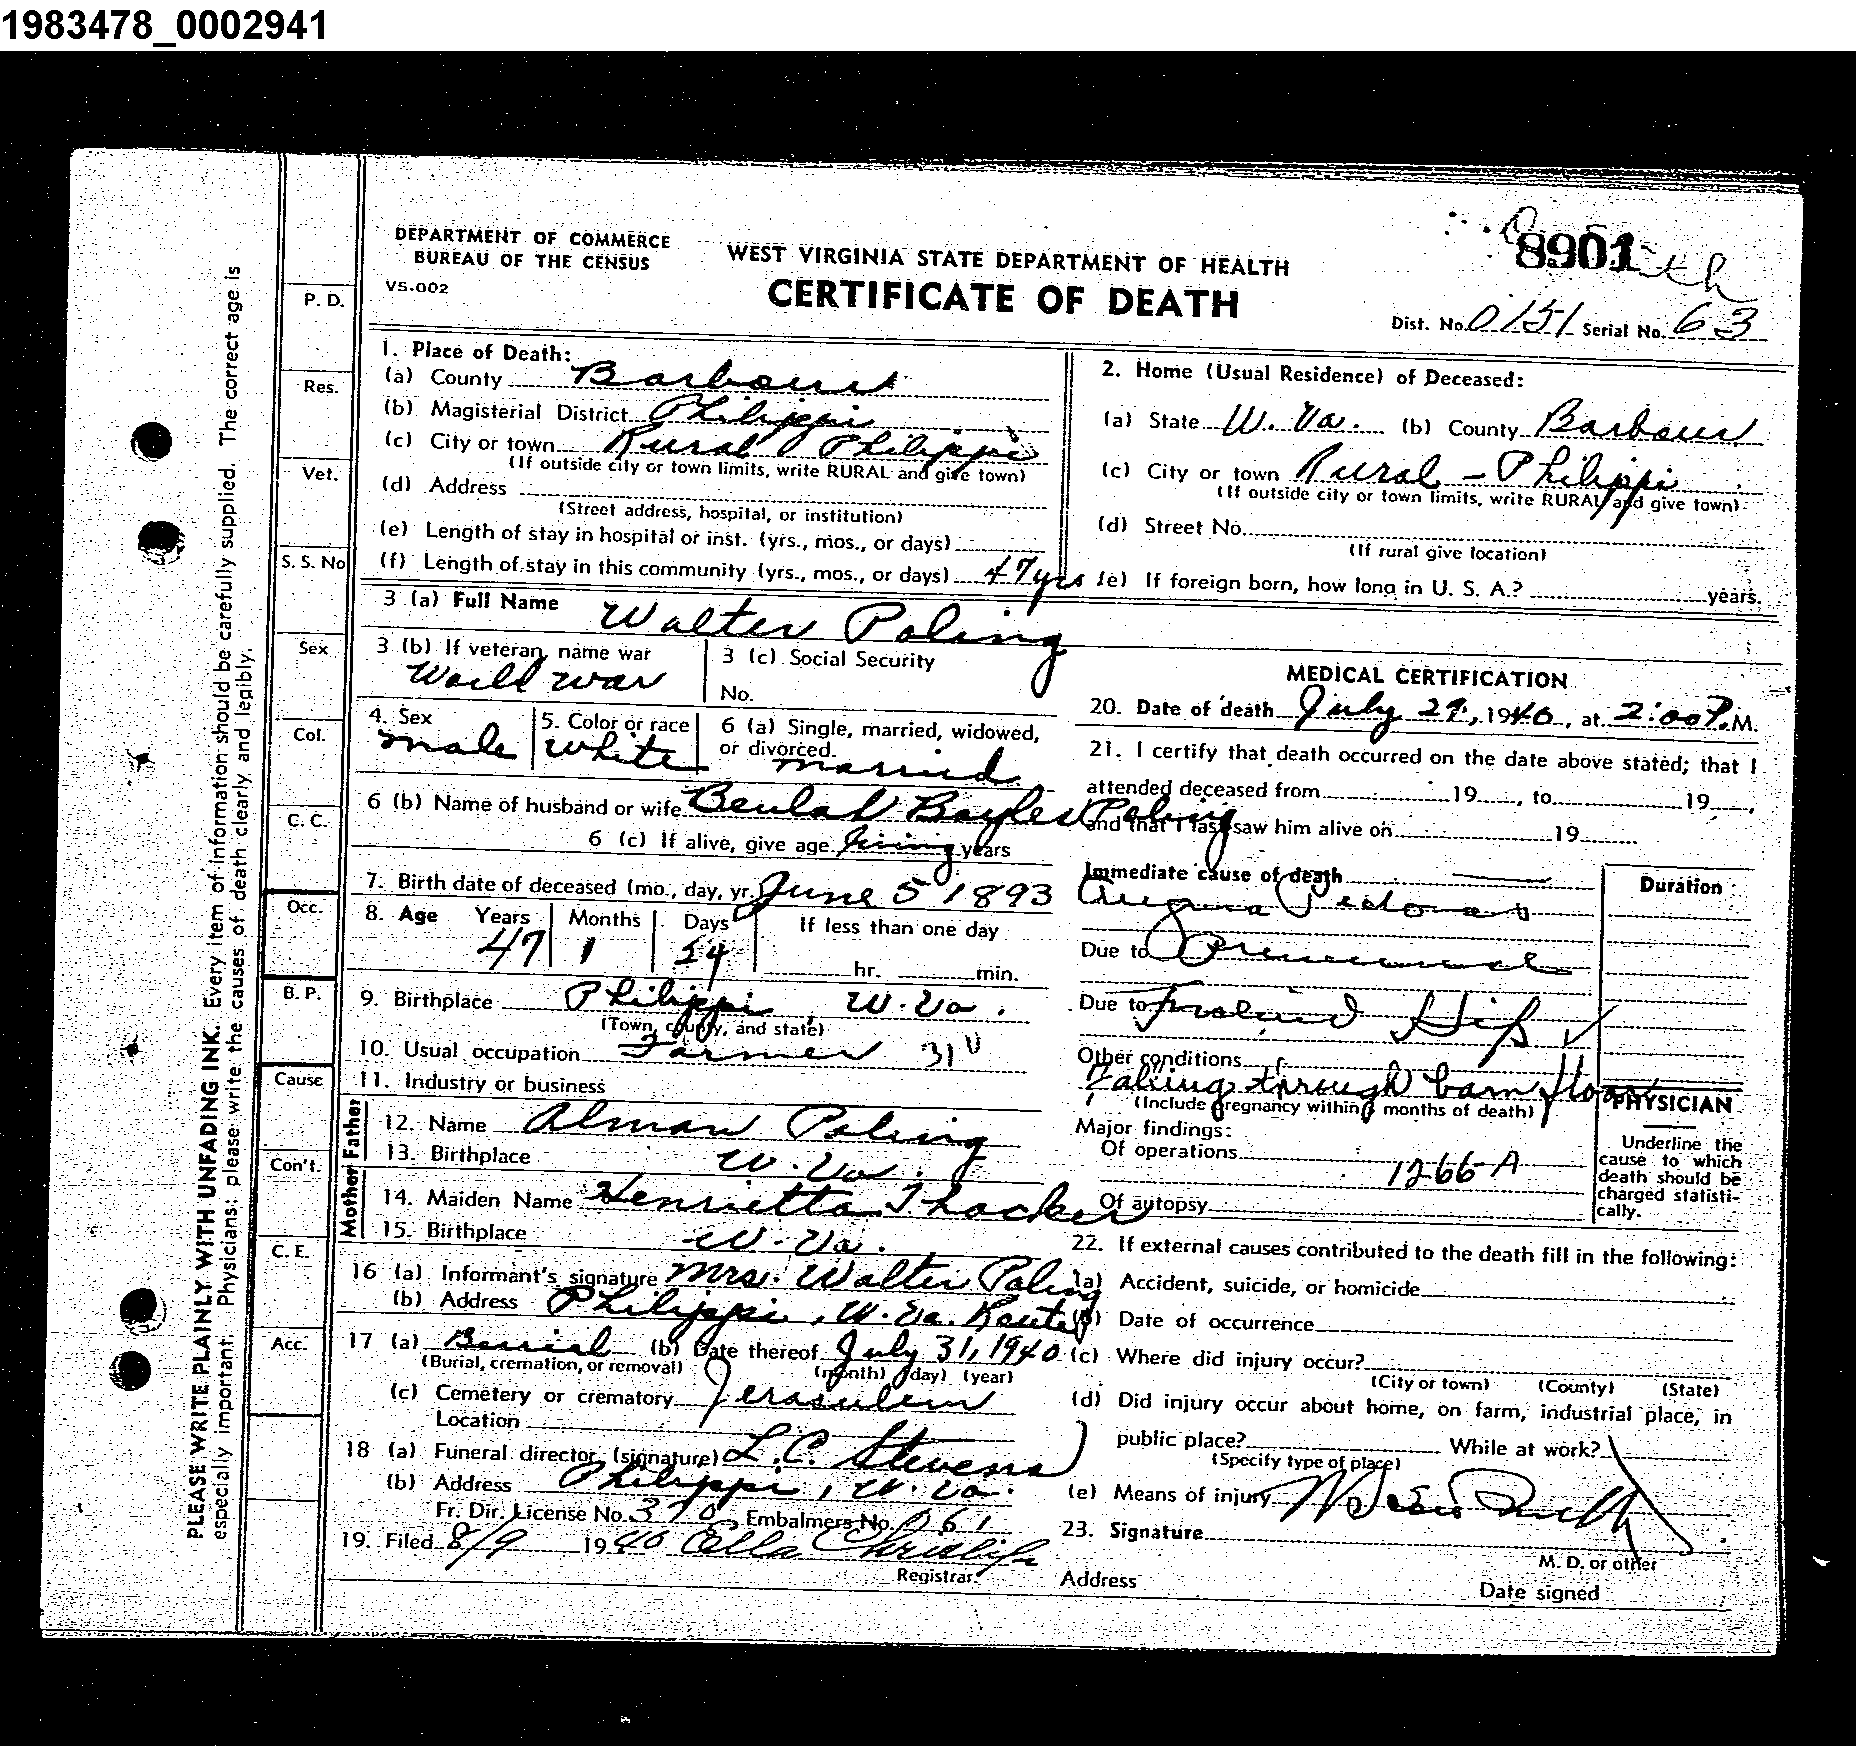 1983478_0002941
DEPARTMENT OF COMMERCE
BUREAU OF THE CENSUS
VS.002
WEST VIRGINIA STATE DEPARTMENT OF HEALTH
CERTIFICATE OF DEATH
8901
Dist. No. 0151 Serial No. 63
1. Place of Death:
(a) County Barbour
(b) Magisterial District Philippi
(c) City or town Rural Philippi
(If outside city or town limits, write RURAL and give town)
(d) Address
(Street address, hospital, or institution)
(e) Length of stay in hospital or inst. (yrs., mos., or days)
(f) Length of stay in this community (yrs., mos., or days) 47 yrs
2. Home (Usual Residence) of Deceased:
(a) State W. Va. (b) County Barbour
(c) City or town Rural - Philippi
(If outside city or town limits, write RURAL and give town)
(d) Street No.
(If rural give location)
(e) If foreign born, how long in U. S. A.? years.
3 (a) Full Name Walter Poling
3 (b) If veteran, name war
World war
3 (c) Social Security
No.
4. Sex
male
5. Color or race
white
6 (a) Single, married, widowed,
or divorced.
married
6 (b) Name of husband or wife Beulah Bayles Poling
6 (c) If alive, give age living years
7. Birth date of deceased (mo., day, yr. June 5 1893
8. Age Years Months Days If less than one day
47 1 24 hr. min.
9. Birthplace Philippi, W. Va.
(Town, county, and state)
10. Usual occupation Farmer 31
11. Industry or business
Father
12. Name Alman Poling
13. Birthplace W. Va.
Mother
14. Maiden Name Henrietta Thacker
15. Birthplace W. Va.
16 (a) Informant's signature Mrs. Walter Poling
(b) Address Philippi, W. Va. Route
17 (a) Burial (b) Date thereof July 31, 1940
(Burial, cremation, or removal) (month) (day) (year)
(c) Cemetery or crematory Jerasulem
Location
18 (a) Funeral director (signature) L. C. Stevens
(b) Address Philippi, W. Va.
Fr. Dir. License No. 370 Embalmers No. 061
19. Filed 8/9 1940 Ella
Registrar
MEDICAL CERTIFICATION
20. Date of death July 29, 1940, at 2:00 P.M.
21. I certify that death occurred on the date above stated; that I
attended deceased from 19 , to 19 ,
and that I last saw him alive on 19
Immediate cause of death
Angina Pectoras
Duration
Due to
Due to Hip
Other conditions
Falling through barn floor
(Include pregnancy within 3 months of death)
Major findings:
Of operations
1266-A
Of autopsy
PHYSICIAN
Underline the
cause to which
death should be
charged statisti-
cally.
22. If external causes contributed to the death fill in the following:
(a) Accident, suicide, or homicide
(b) Date of occurrence
(c) Where did injury occur?
(City or town) (County) (State)
(d) Did injury occur about home, on farm, industrial place, in
public place? While at work?
(Specify type of place)
(e) Means of injury
23. Signature
M. D. or other
Address
Date signed
P. D.
Res.
Vet.
S. S. No
Sex
Col.
C. C.
Occ.
B. P.
Cause
Con't.
C. E.
Acc.
PLEASE WRITE PLAINLY WITH UNFADING INK. Every item of information should be carefully supplied. The correct age is
especially important. Physicians: please write the causes of death clearly and legibly.